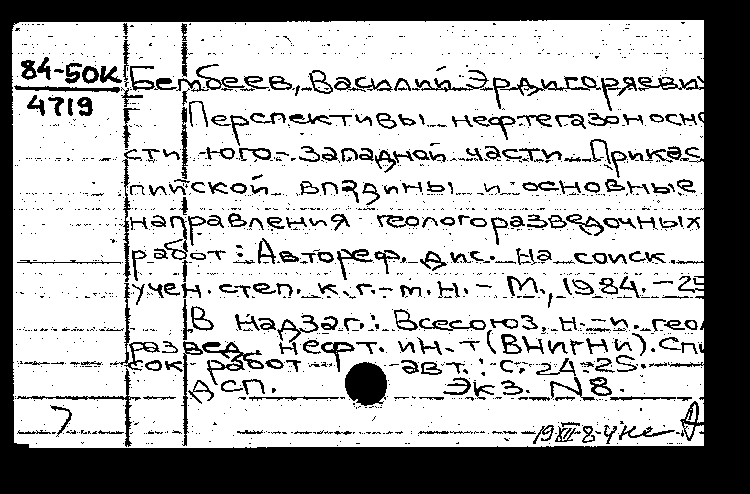 84-50К
4719
Бембеев, Василий Эрдигоряевич
Перспективы нефтегазоносно
сти юго-западной части Прикас
пийской впадины и основные
направления геологоразведочных
работ: Автореф. дис. на соиск.
учен. степ. к. г.-м. н. - М., 1984. - 25
В надзаг.: Всесоюз. н.-и. геол
развед. нефт. ин-т (ВНИГНИ). Спи
сок работ авт.: с. 24-25.
ДСП. Экз. N 8.
19 XII 84